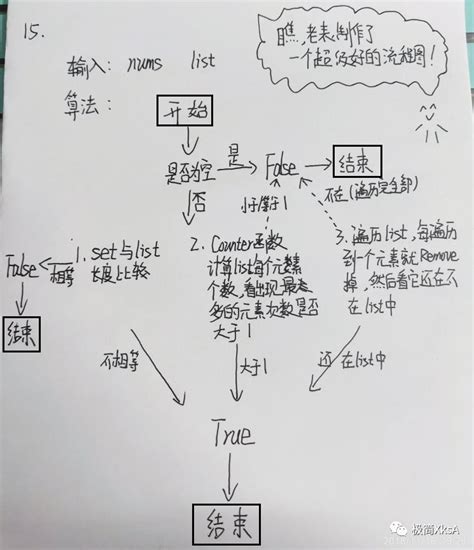 15.
瞧,老表制作了
一个超级好的流程图!
输入: nums list
算法:
开始
是否为空
是
False
结束
否
小于等于1
不在(遍历完全部)
1. set与list
长度比较
相等
False
结束
2. Counter函数
计算list每个元素
个数,看出现最
多的元素次数是否
大于1
3. 遍历list,每遍历
到一个元素就Remove
掉,然后看它还在不
在list中
不相等
大于1
还在list中
True
结束
极简XksA